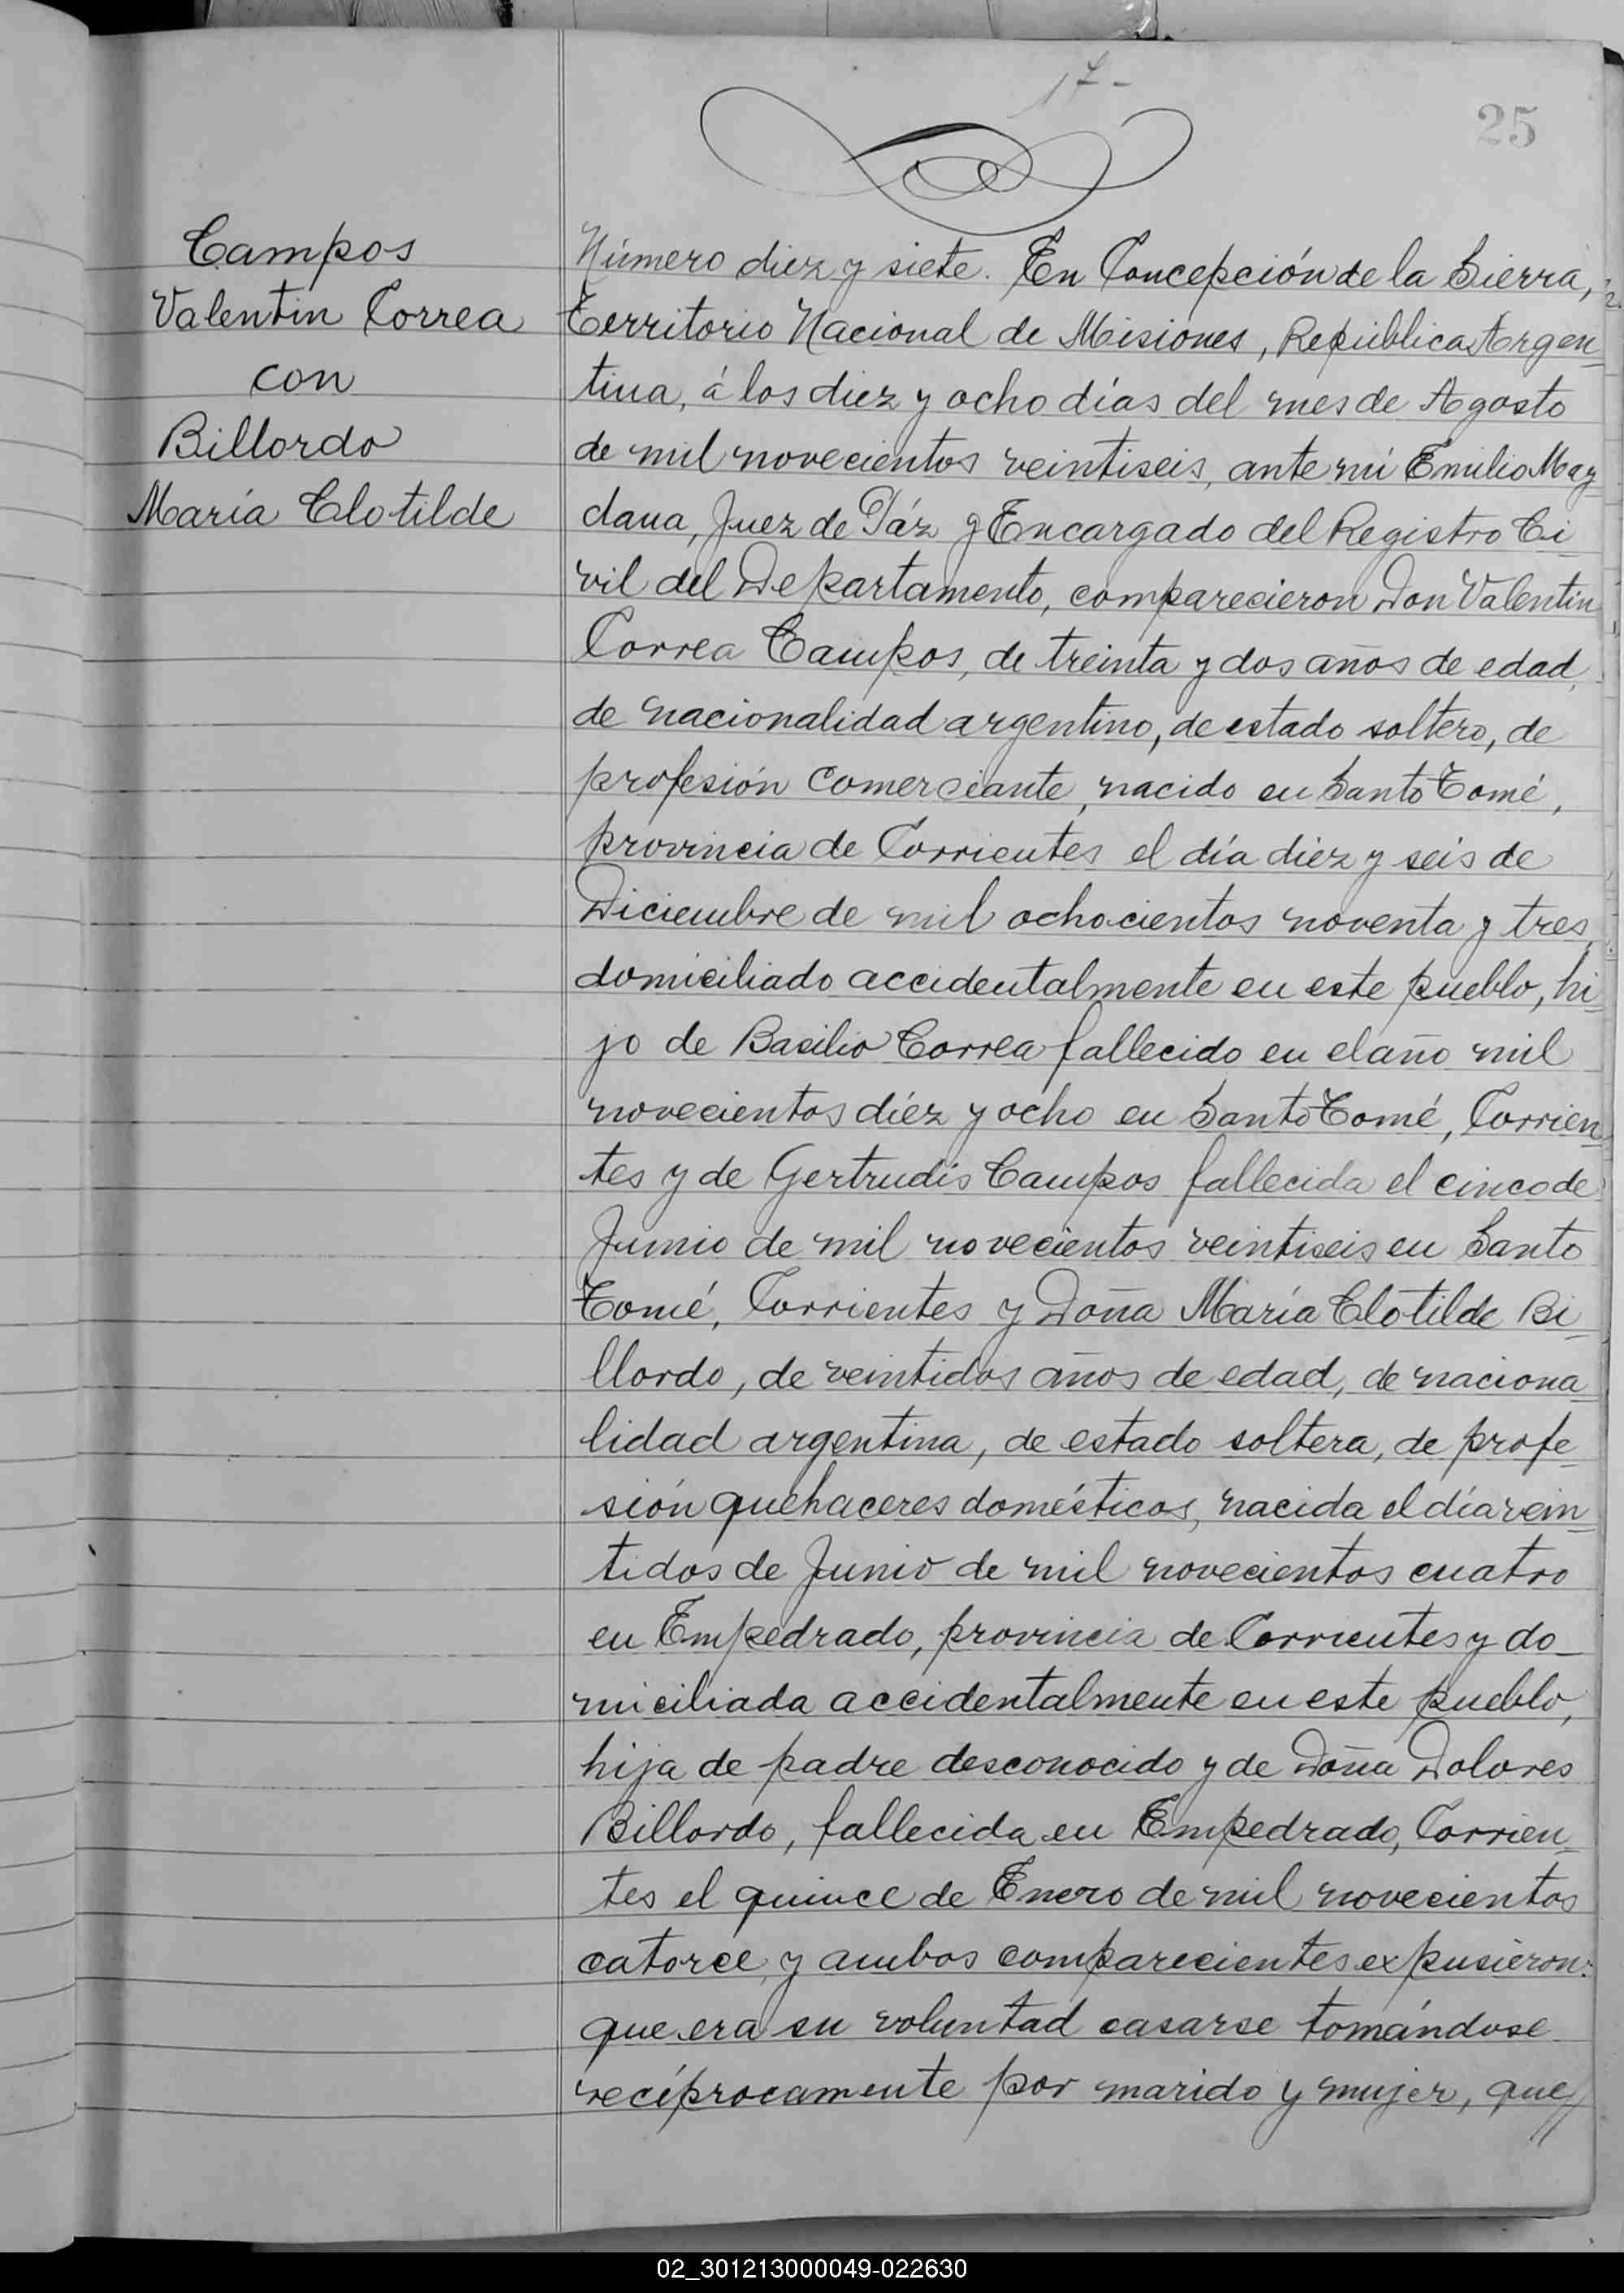 17-
25
Campos
Valentin Correa
con
Billordo
María Clotilde
Número diez y siete. En Concepción de la Sierra,
Territorio Nacional de Misiones, República Argen
tina, á los diez y ocho días del mes de Agosto
de mil novecientos veintiseis, ante mi Emilio May
dana, Juez de Páz y Encargado del Registro Ci
vil del Departamento, comparecieron Don Valentin
Correa Campos, de treinta y dos años de edad,
de nacionalidad argentino, de estado soltero, de
profesión comerciante, nacido en Santo Tomé,
provincia de Corrientes el día diez y seis de
Diciembre de mil ochocientos noventa y tres,
domiciliado accidentalmente en este pueblo, hi
jo de Basilio Correa fallecido en el año mil
novecientos diéz y ocho en Santo Tomé, Corrien
tes y de Gertrudis Campos fallecida el cinco de
Junio de mil novecientos veintiseis en Santo
Tomé, Corrientes y Doña María Clotilde Bi
llordo, de veintidos años de edad, de naciona
lidad argentina, de estado soltera, de profe
sión quehaceres domésticos, nacida el día vein
tidos de Junio de mil novecientos cuatro
en Empedrado, provincia de Corrientes y do
miciliada accidentalmente en este pueblo,
hija de padre desconocido y de Doña Dolores
Billordo, fallecida en Empedrado, Corrien
tes el quince de Enero de mil novecientos
catorce, y ambos comparecientes expusieron:
que era su voluntad casarse tomándose
recíprocamente por marido y mujer, que//
02_301213000049-022630